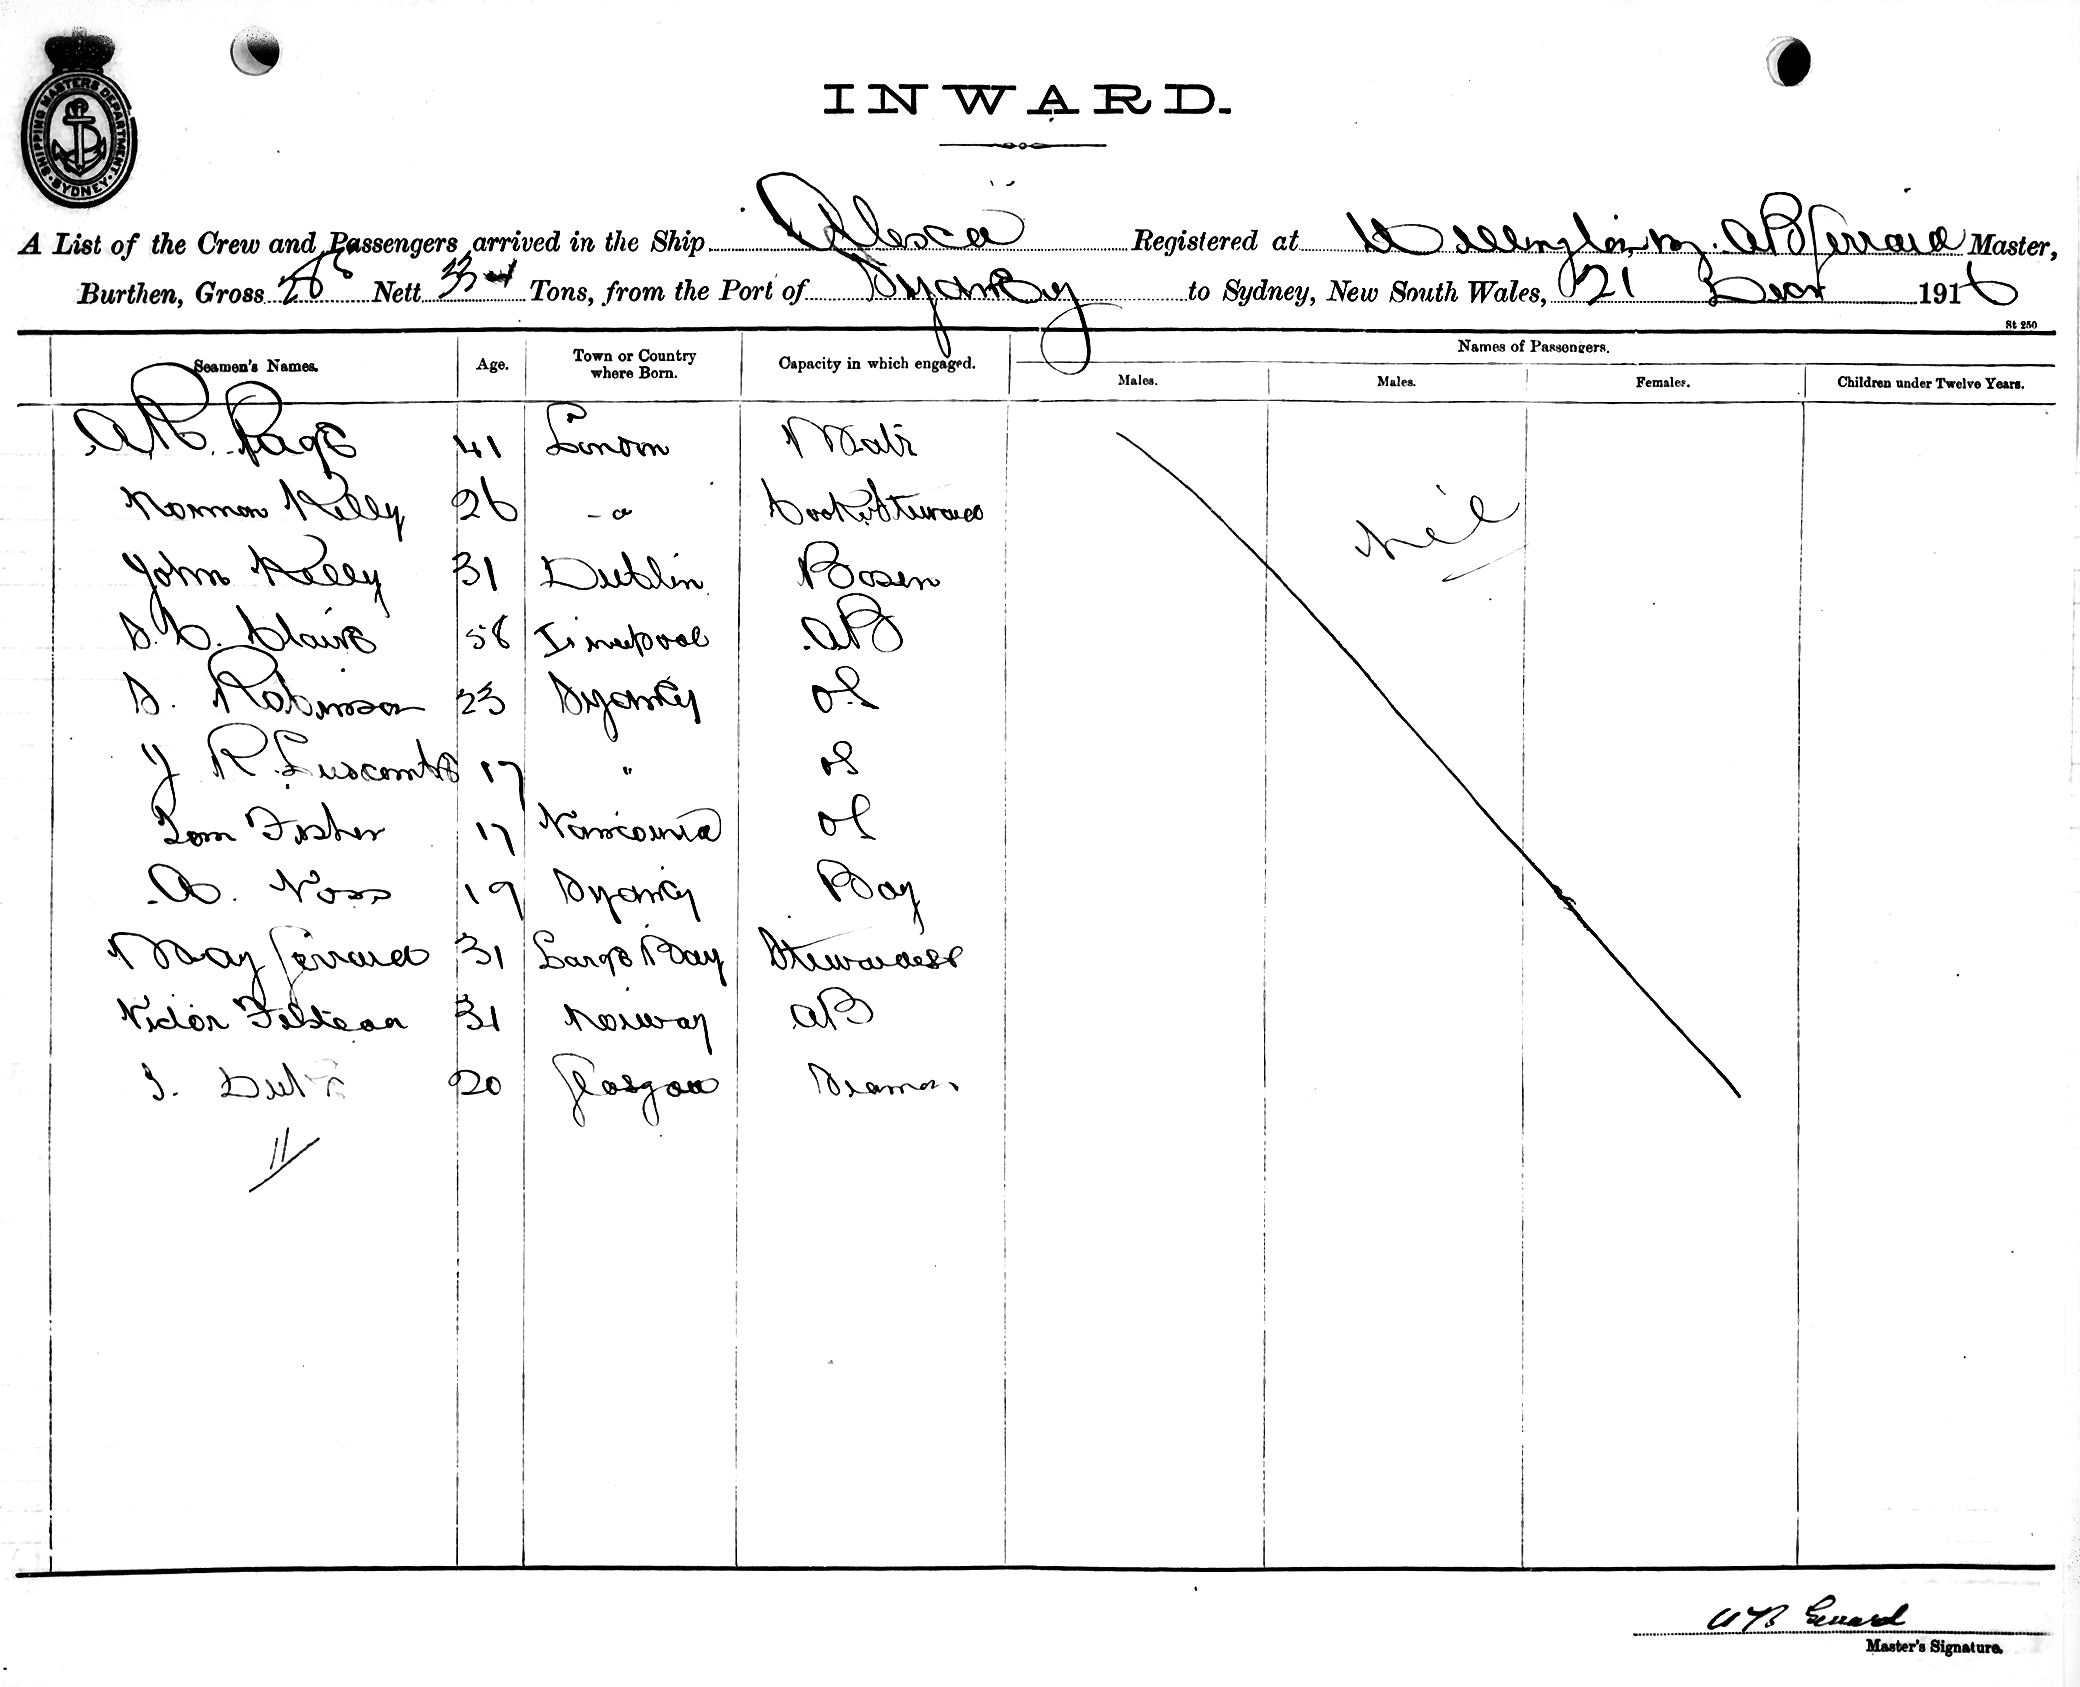 SHIPPING MASTERS DEPARTMENT. SYDNEY.
INWARD.
A List of the Crew and Passengers arrived in the Ship Registered at Wellington NZ. AB Gerrard Master,
Burthen, Gross Nett Tons, from the Port of Sydney to Sydney, New South Wales, 21 Decr 1916
St 250
Seamen's Names. Age. Town or Country where Born. Capacity in which engaged. Names of Passengers.
Males. Males. Females. Children under Twelve Years.
A R. Page 41 London Mate
Norman Kelly 26 - Cook & Steward Nil
John Kelly 31 Dublin Bosen
S. C. Claire 58 Liverpool AB
S. Robinson 23 Sydney OS
J R. Luscombe 17 " OS
Tom Fisher 17 OS
A. Voss 19 Sydney Boy
May Gerrard 31 Largo Bay Stewardess
Victor 31 Norway AB
20 Glasgow Seaman
11
AB Gerrard
Master's Signature.